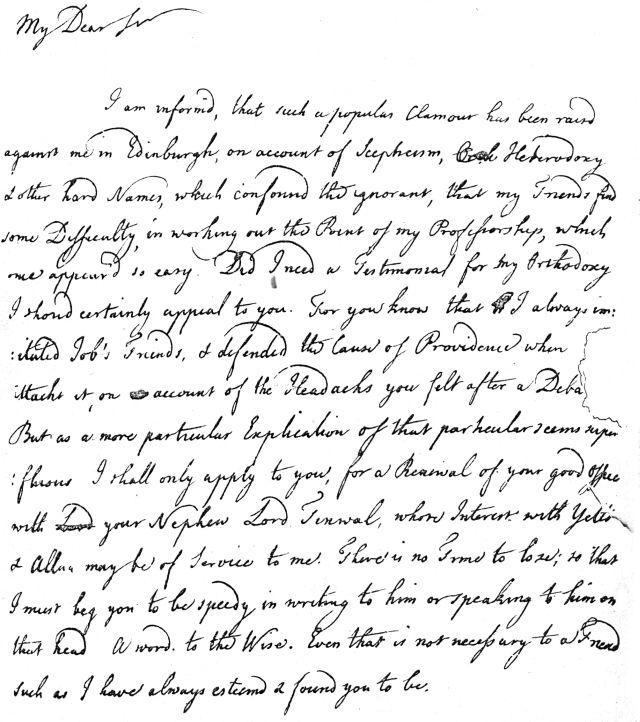 My Dear Sir
I am inform'd, that such a popular Clamour has been raisd
against me in Edinburgh, on account of Scepticism, Heterodoxy
& other hard Names, which confound the Ignorant, that my Friends find
some Difficulty, in working out the Point of my Professorship, which
once appear'd so easy. Did I need a Testimonial for my Orthodoxy
I shoud certainly appeal to you. For you know that I always im:
:itated Job's Friends, & defended the Cause of Providence when
attackt it, on account of the Headachs you felt after a Deba
But as a more particular Explication of that particular seems super
:fluous I shall only apply to you, for a Renewal of your good offices
with your Nephew Lord Tinwal, whose Interest with Yetts
& Allan may be of Service to me. There is no Time to lose; so that
I must beg you to be speedy in writing to him or speaking to him on
that head A word to the Wise. Even that is not necessary to a Friend
such as I have always esteemd & found you to be.